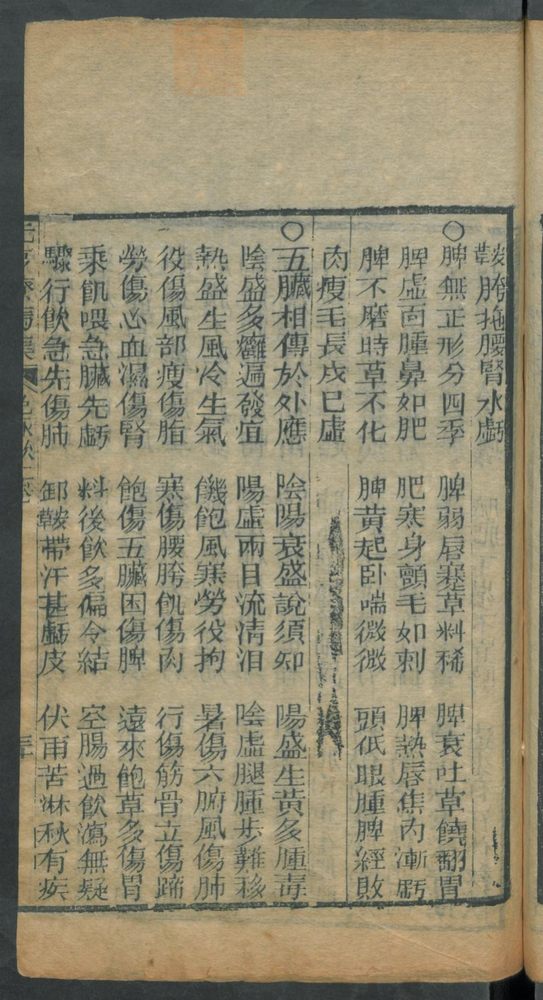 胯拖腰腎水虧
○脾無正形分四季 脾弱唇蹇草料稀 脾衰吐草饒翻胃
脾虛面腫鼻如肥 肥寒身顫毛如刺 脾熱唇焦內漸虧
脾不磨時草不化 脾黃起卧喘微微 頭低眼腫脾經敗
肉瘦毛長戌巳虛
○五臟相傳於外應 陰陽衰盛說須知 陽盛生黃多腫毒
陰盛多癰遍發疽 陽虛兩目流清泪 陰虛腿腫步難移
熱盛生風冷生氣 饑飽風寒勞役拘 暑傷六腑風傷肺
役傷風部瘦傷脂 寒傷腰胯飢傷肉 行傷筋骨立傷蹄
勞傷心血濕傷腎 飽傷五臟困傷脾 遠來飽草多傷胃
乘飢喂急臟先虧 料後飲多偏令結 空腸過飲瀉無疑
驟行飲急先傷肺 卸鞍帶汗甚虧皮 伏雨苦淋秋有疾